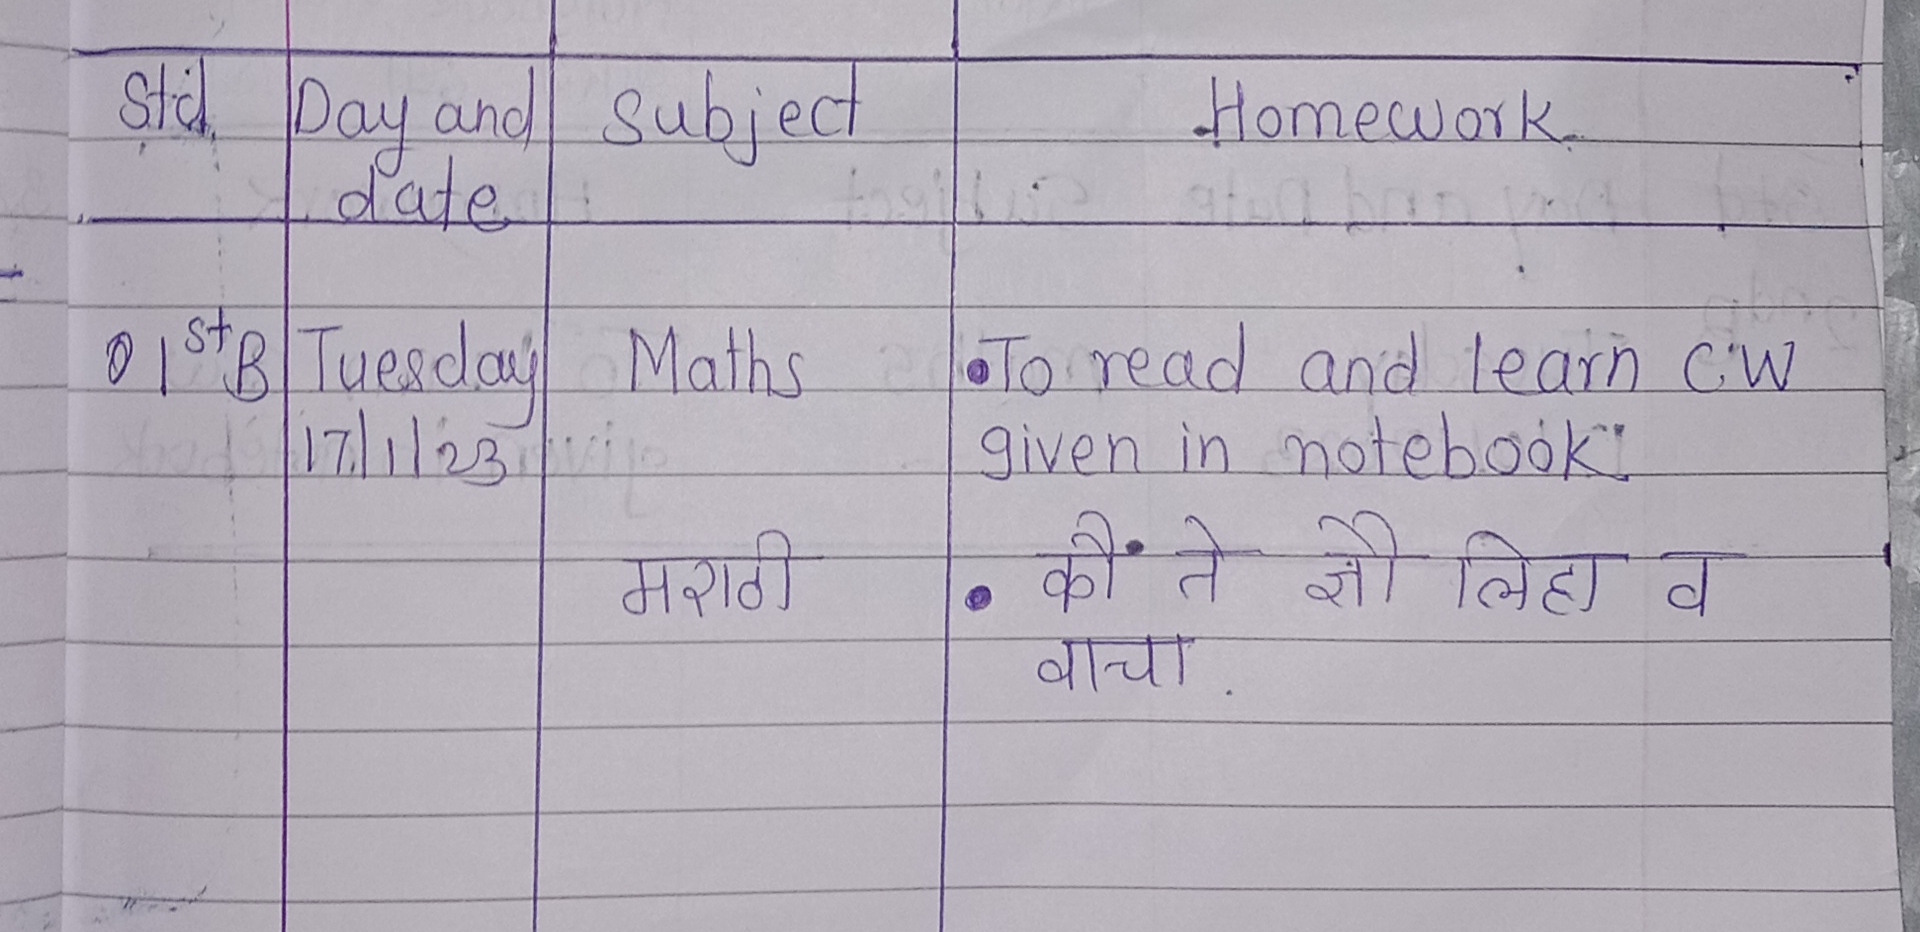 Std. Day and date Subject Homework
01st B Tuesday Maths •To read and learn C.W
17/1/23 given in notebook.
मराठी • कौ ते ज्ञौ लिहा व
वाचा.